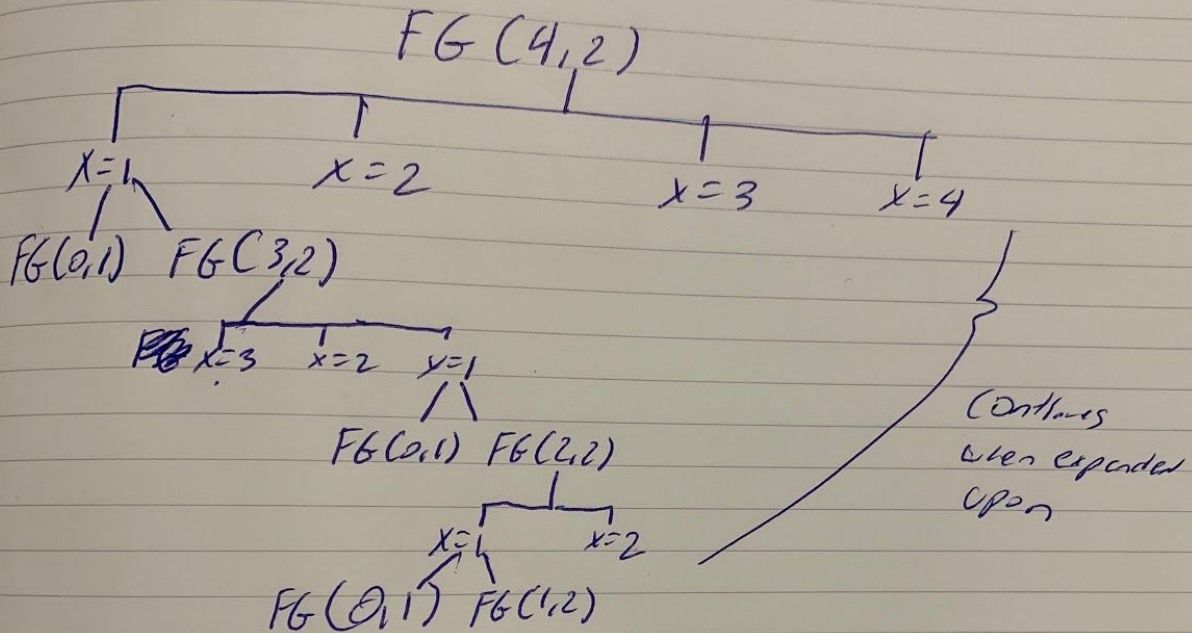 FG(4,2)
x=1 x=2 x=3 x=4
FG(0,1) FG(3,2)
x=3 x=2 x=1
FG(0,1) FG(2,2)
x=1 x=2
FG(0,1) FG(1,2)
Continues
when expanded
upon